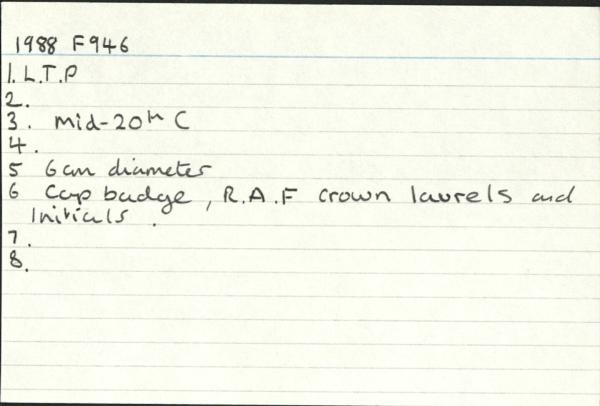 1988 F946
1. L.T.P
2.
3. Mid-20th C
4.
5 6cm diameter
6 Cap badge, R.A.F crown laurels and
Initials.
7.
8.